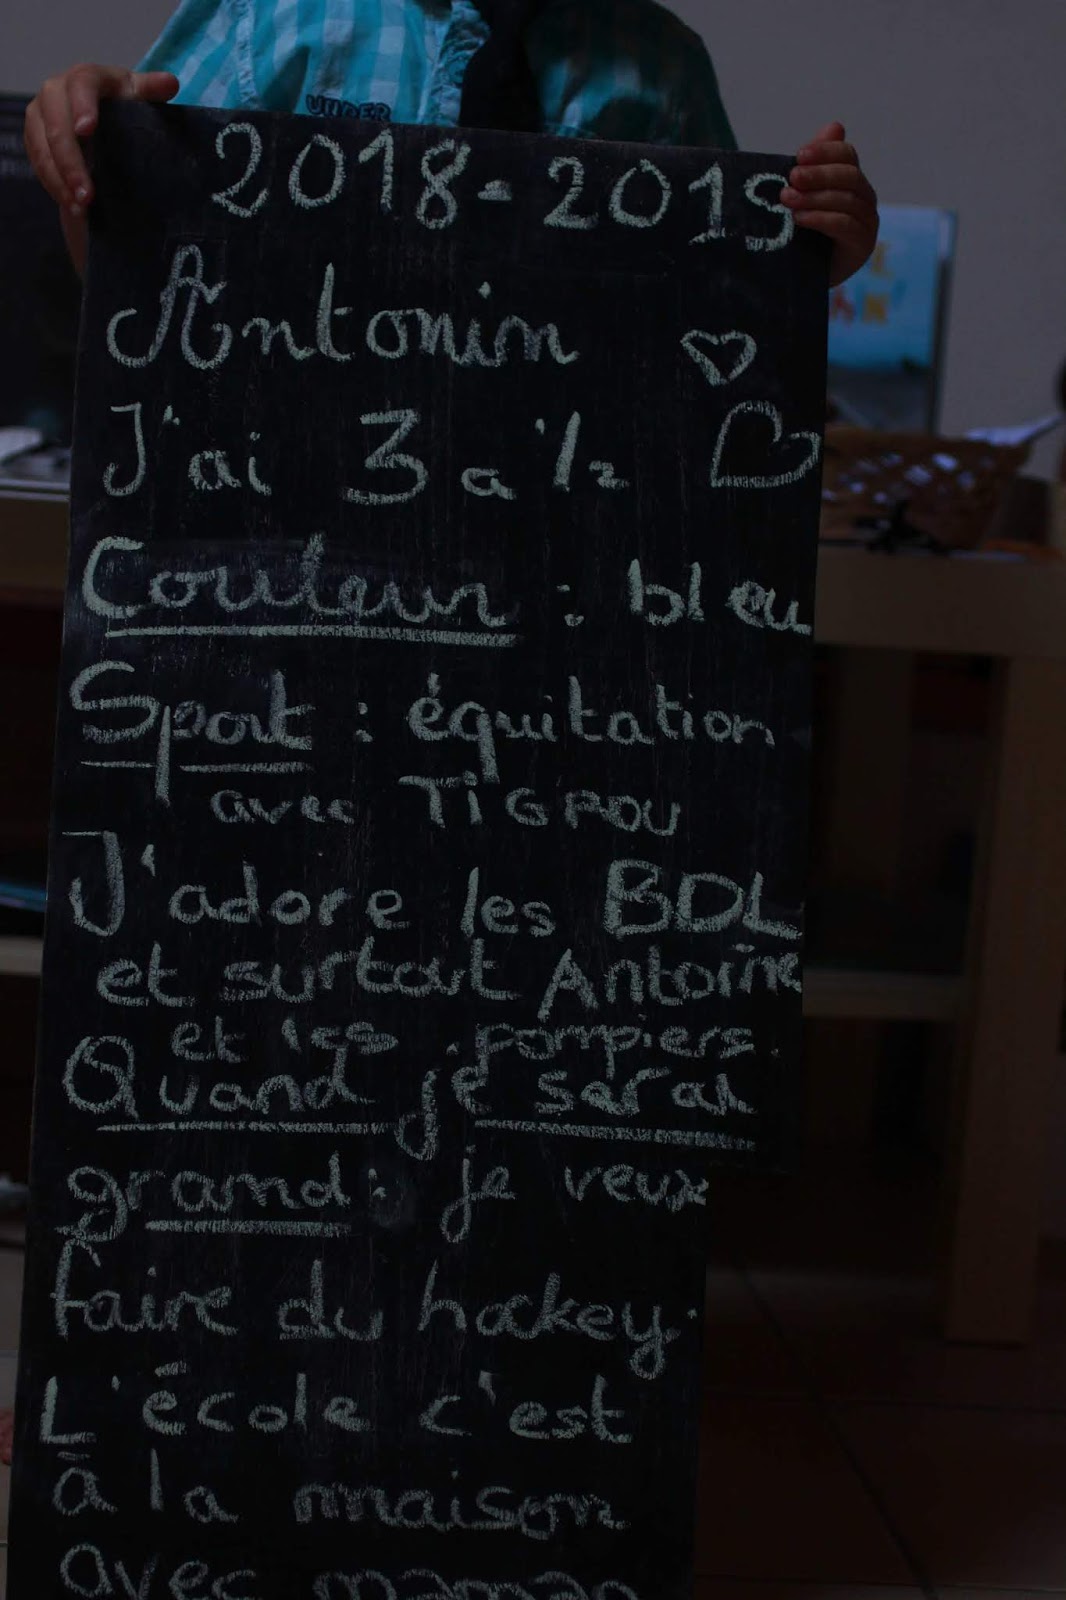 UNDER
2018-2019
Antonin
J'ai 3 a 1/2
Couleur : bleu
Sport : équitation
avec TIGROU
J'adore les BDL
et surtout Antoine
et les pompiers.
Quand je serai
grand : je veux
faire du hockey.
L'école c'est
à la maison
avec maman